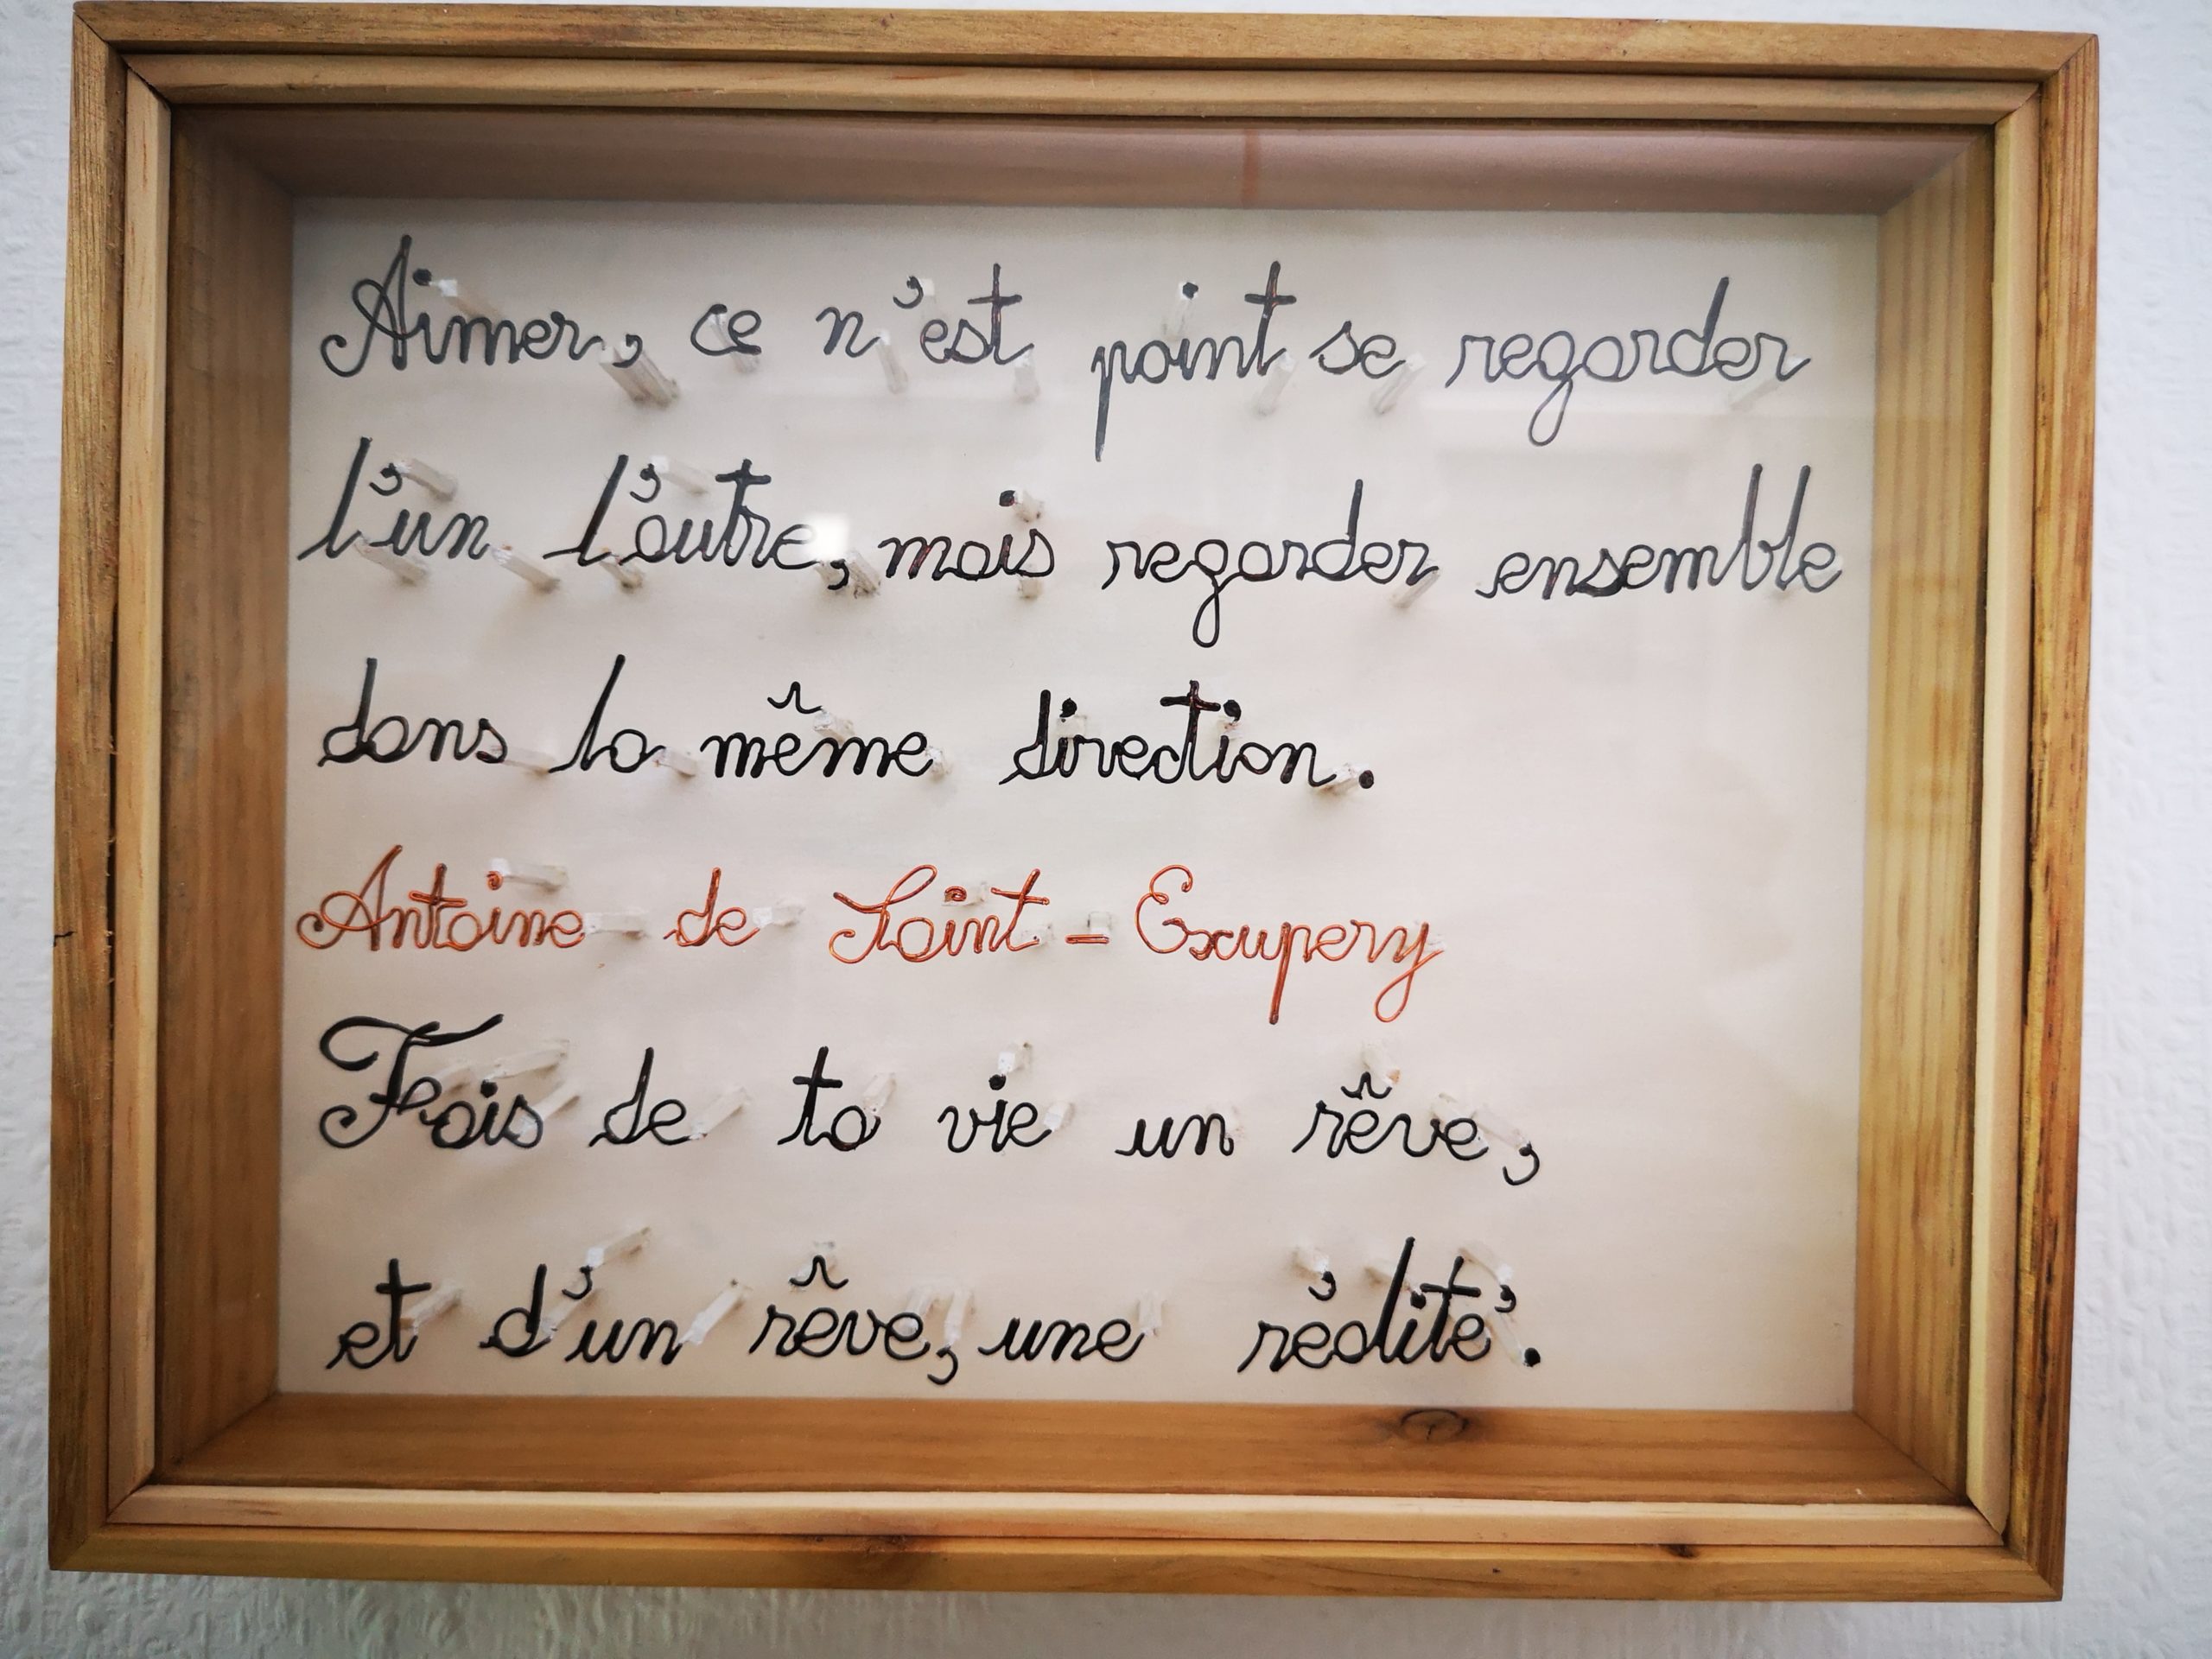 Aimer, ce n'est point se regarder
l'un l'autre, mais regarder ensemble
dans la même direction.
Antoine de Saint-Exupery
Fais de ta vie un rêve,
et d'un rêve, une réalité.